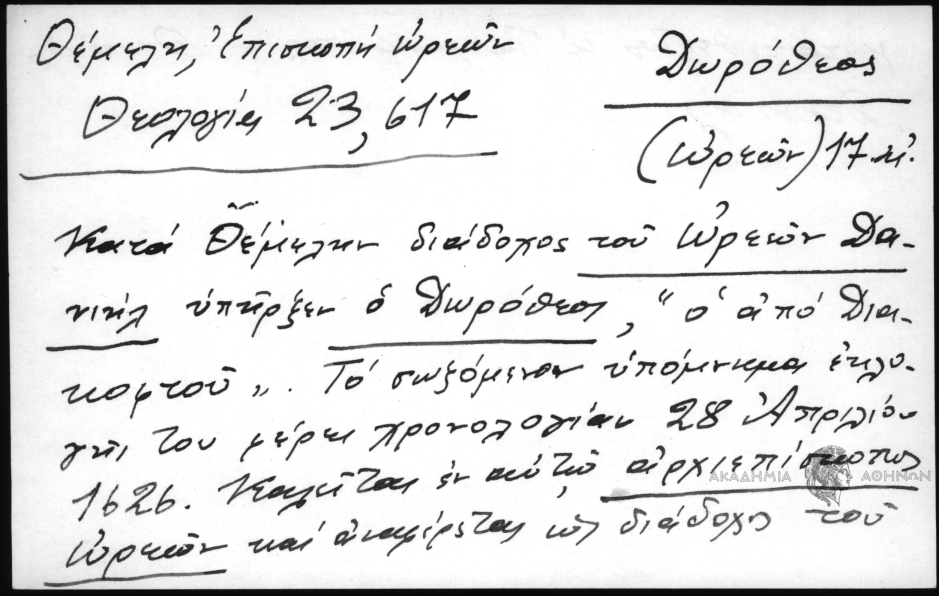 Θέμελη, Ἐπισκοπή Ὠρεῶν
Θεολογία 23, 617
Δωρόθεος
(Ὠρεῶν) 17 αἰ.
Κατά Θέμελην διάδοχος τοῦ Ὠρεῶν Δα-
νιήλ ὑπῆρξεν ὁ Δωρόθεος, "ὁ ἀπό Δια-
κοφτοῦ". Τό σωζόμενον ὑπόμνημα ἐκλο-
γῆς του φέρει χρονολογίαν 28 Ἀπριλίου
1626. Καλεῖται ἐν αὐτῷ ἀρχιεπίσκοπος
Ὠρεῶν καί ἀναφέρεται ὡς διάδοχος τοῦ
ΑΚΑΔΗΜΙΑ ΑΘΗΝΩΝ